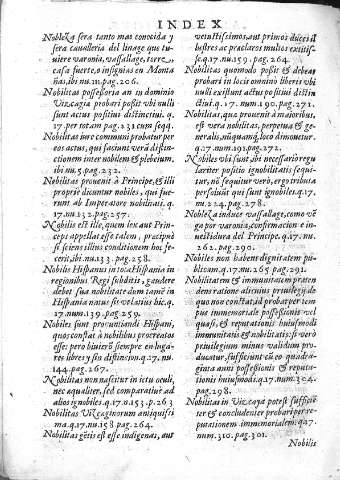 INDEX
Nobleza sera tanto mas conocida y
sera cavalleria del linage que tu-
uiere varonia, vassallage, torre,
casa fuerte, o insignias en Monta
ñas, ibi nu.111.pag.206.
Nobilitas possessoria an in dominio
Vizcagia probari possit vbi nulli
sunt actus positiui distinctiui. q.
17. per totam pag.131.cum seqq.
Nobilitas iure communi probatur per
eos actus, qui faciunt verã distin-
ctionem inter nobilem & plebeium,
ibi nu.5.pag.232.
Nobilitas prouenit à Principe, & illi
propriè dicuntur nobiles, qui fue-
rum ab Imperatore nobilitati. q.
17.nu.132.pag.257.
Nobilis est ille, quem lex aut Prin-
ceps appellat esse talem, præcipuè
si sciens illius conditionem hoc fe-
cerit, ibi nu.133.pag.258.
Nobilis Hispanus in tota Hispania in
regionibus Regi subditis, gaudere
debet sua nobilitate dum tamẽ in
Hispania natus sit vel aliùs hic. q.
17.nu.139.pag.259.
Nobiles sunt pronuntiandi Hispani,
quos constat à nobilibus procreatos
esse: pero biuierõ siempre en luga-
res libres y sin distincion. q.17.nu.
144.pag.267.
Nobilitas non nascitur in ictu oculi,
nec aqualiter, sed comparatiuè ad
alios ignobiles. q.17.n.153.p.263
Nobilitas Vizcaginorum antiquissi
ma. q.17.nu.158.pag.264.
Nobilitas gẽtis est esse indigenas, aut
vetustissimos, aut primos duces il
lustres ac praclaros multos extitis-
se. q.17.nu.159.pag.264.
Nobilitas quomodo possit & debeat
probari in locis omnino liberis vbi
nulli existunt actus positiui distin
ctiui. q.17.num.190.pag.271.
Nobilitas, qua prouenit à maioribus,
est vera nobilitas, perpetua & ge-
neralis, nũquamq; loco dimouetur.
q.17.nu.193.pag.271.
Nobiles vbi sunt ibi necessario regu
lariter positio ignobilitatis sequi-
tur, nõ sequitur verò, ergo tributa
persoluũt qui sunt ignobiles. q.17.
nu.224.pag.278.
Nobleza induce vassallage, como vẽ
ga por varonia, confirmacion e in-
uestidura del Principe. q.17.nu.
262.pag.290.
Nobiles non habent dignitatem pu-
blicam. q.17.nu.265 pag.291.
Nobilitatem & immunitatem præten
dens ratione alicuius priuilegij de
quo non constat, id probare per tem
pus immemoriale possessionis vel
quasi, & reputationis huiusmodi
immunitatis & nobilitatis; si verò
priuilegium minus validum pro-
ducatur, sufficiunt cũ eo quadra-
ginta anni possessionis & reputa-
tionis huiusmodi. q.17.num.304.
pag.298.
Nobilitas in Vizcaya potest sufficiẽ
ter & concludenter probari per re-
putationem immemorialem. q.17
num.310.pag.301.
Nobilis